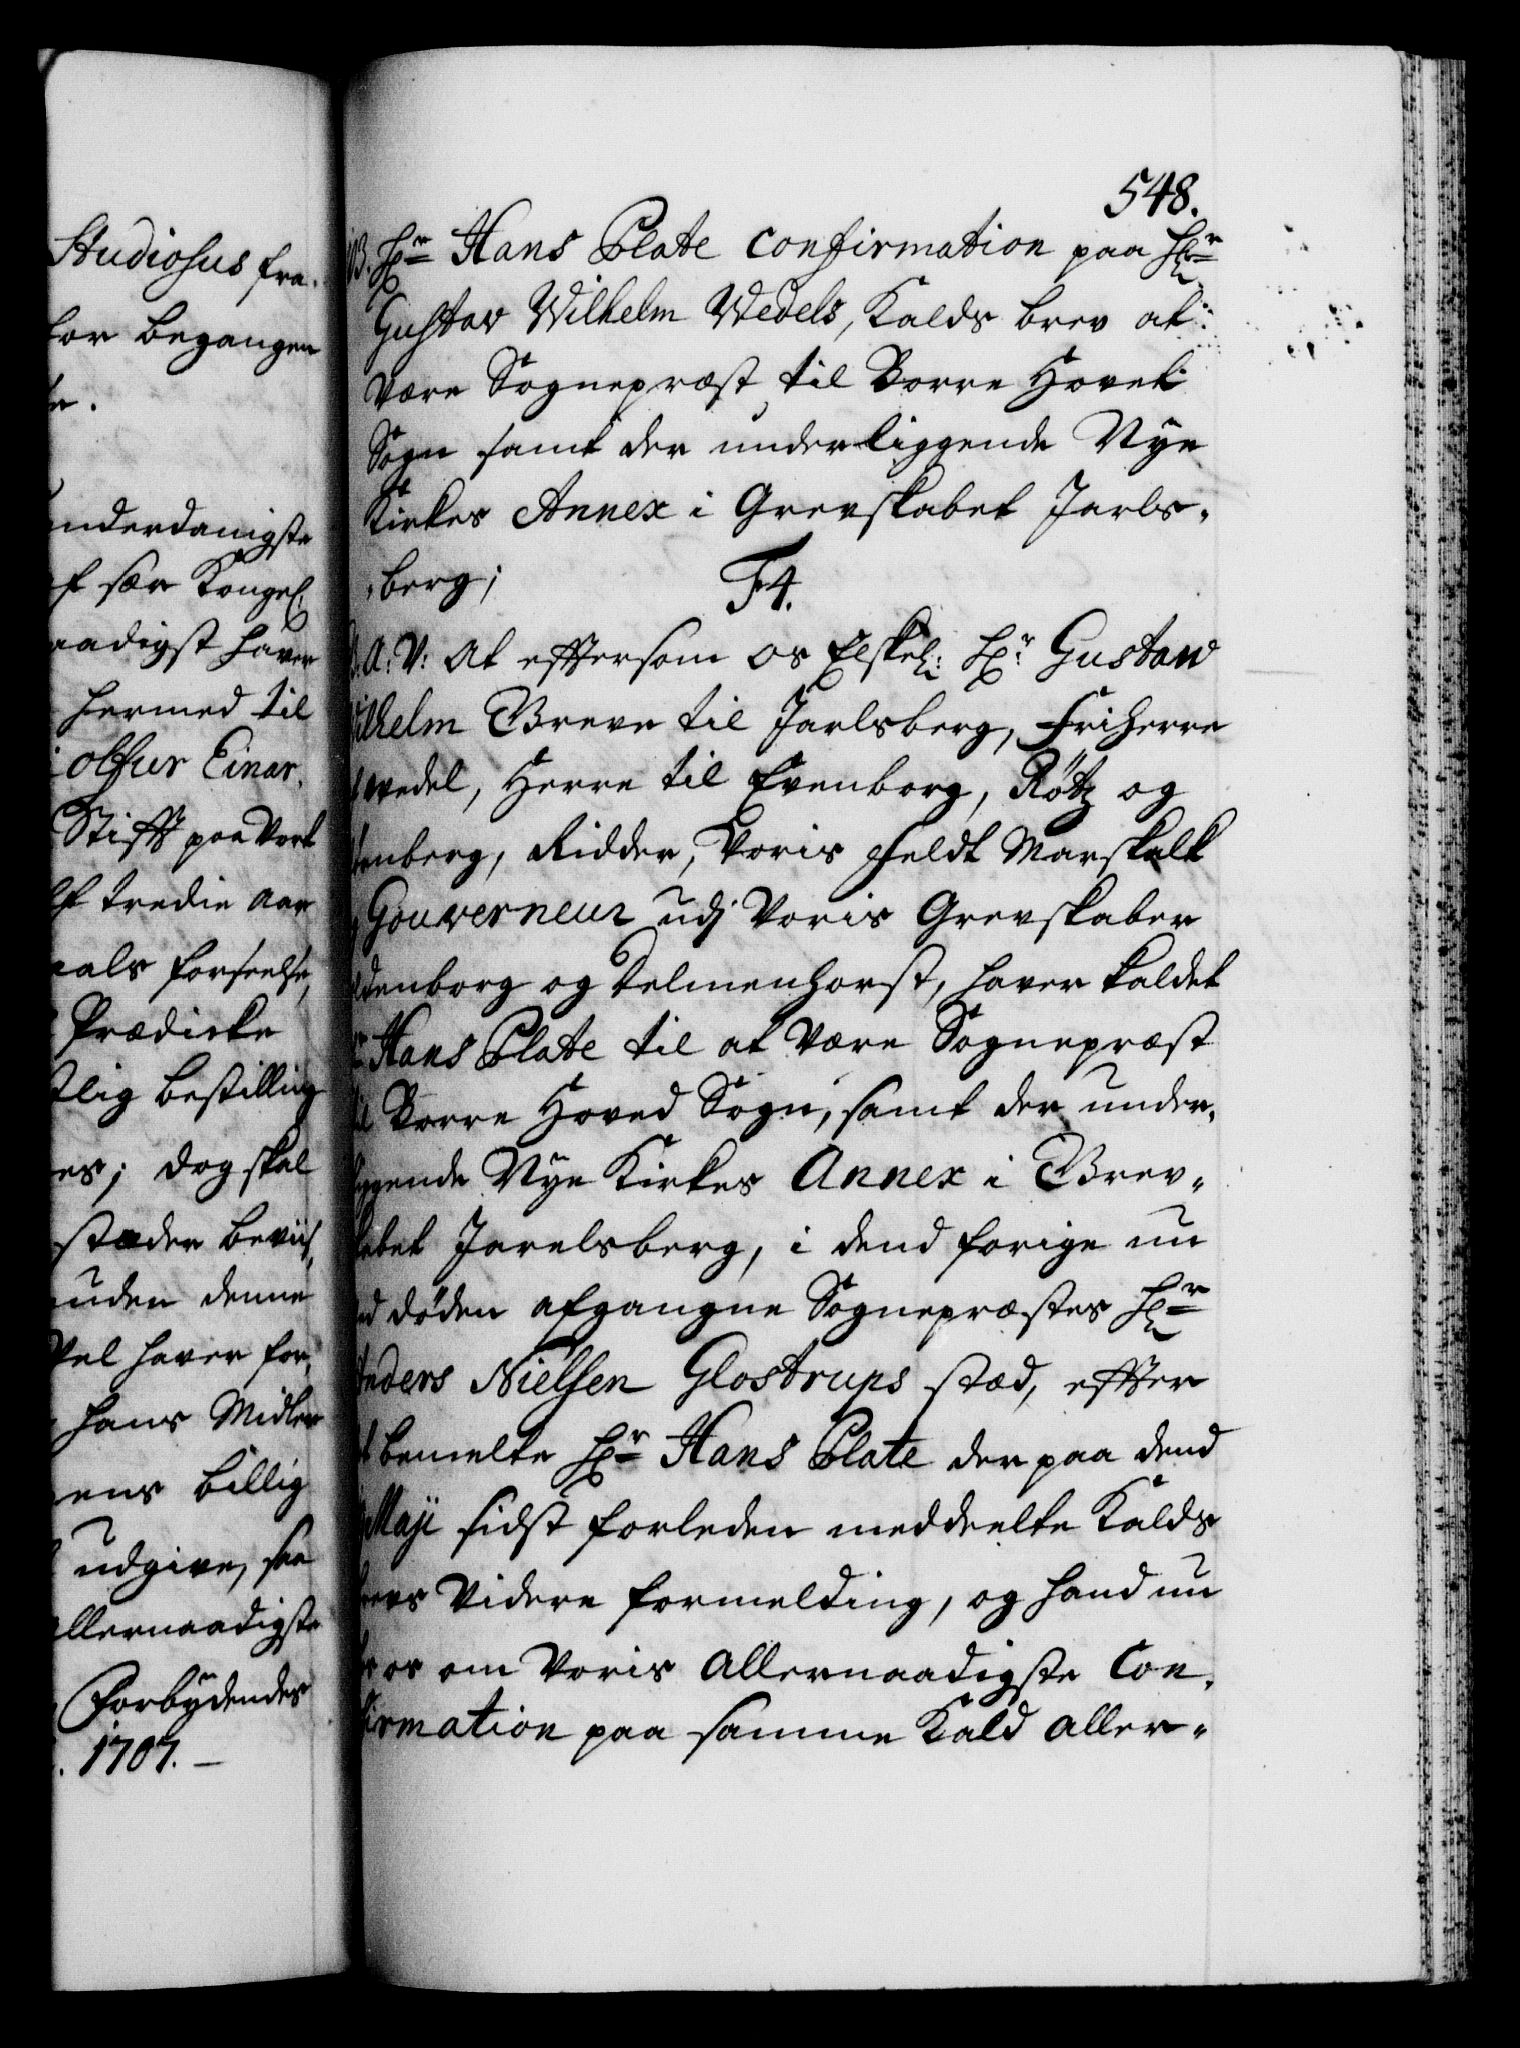 Studiosus fra-
for begangen
underdanigste
af sær Kongel.
naadigst haver
hermed til
olfur Einar-
Stifft paa Vort
tredie Aar
mals forseelse,
Prædicke
tlig bestilling
es; dog skal
stæder beviis,
uden denne
Vel haver for-
hans Midler
ens billig
udgive, saa
Allernaadigste
Forbydendes
1707. —
548.
Hr Hans Plate Confirmation paa Hr
Gustav Wilhelm Wedels, Kalds brev at
være Sognepræst til Borre Hovet
Sogn samt der underliggende Nye
Kirkes Annex i Grevskabet Jarls-
berg;
F4.
A: V: At efftersom os Elskel: Hr: Gustaw
Wilhelm Greve til Jarlsberg, Friherre
wedel, Herre til Evenborg, Rötz og
enberg, Ridder, Voris Feldt Marskalk
Gouverneur udj Voris Grevskaber
Oldenborg og Delmenhorst, haver kaldet
Hr Hans Plate til at være Sognepræst
til Borre Hoved Sogn, samt der under-
liggende Nye Kirkes Annex i Grev-
skabet Jarelsberg, i dend forige nu
ved døden afgangne Sognepræstes Hr
Anders Nielsen Glostrups stæd, effter
bemelte Hr Hans Plate der paa dend
Maji sidst forleden meddeelte Kalds
brevs Videre formelding, og hand nu
os om Voris Allernaadigste Con-
firmation paa samme Kald aller-